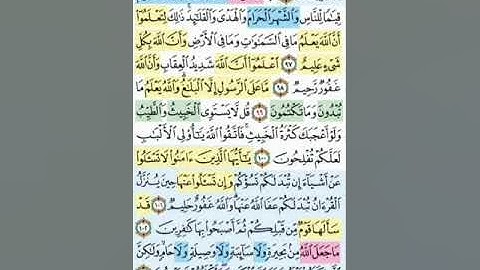 قِيَٰمًا لِّلنَّاسِ وَٱلشَّهْرَ ٱلْحَرَامَ وَٱلْهَدْىَ وَٱلْقَلَٰٓئِدَ ذَٰلِكَ لِتَعْلَمُوٓا۟
أَنَّ ٱللَّهَ يَعْلَمُ مَا فِى ٱلسَّمَٰوَٰتِ وَمَا فِى ٱلْأَرْضِ وَأَنَّ ٱللَّهَ بِكُلِّ
شَىْءٍ عَلِيمٌ ٩٧ ٱعْلَمُوٓا۟ أَنَّ ٱللَّهَ شَدِيدُ ٱلْعِقَابِ وَأَنَّ ٱللَّهَ
غَفُورٌ رَّحِيمٌ ٩٨ مَّا عَلَى ٱلرَّسُولِ إِلَّا ٱلْبَلَٰغُ وَٱللَّهُ يَعْلَمُ مَا
تُبْدُونَ وَمَا تَكْتُمُونَ ٩٩ قُل لَّا يَسْتَوِى ٱلْخَبِيثُ وَٱلطَّيِّبُ
وَلَوْ أَعْجَبَكَ كَثْرَةُ ٱلْخَبِيثِ فَٱتَّقُوا۟ ٱللَّهَ يَٰٓأُو۟لِى ٱلْأَلْبَٰبِ
لَعَلَّكُمْ تُفْلِحُونَ ١٠٠ يَٰٓأَيُّهَا ٱلَّذِينَ ءَامَنُوا۟ لَا تَسْـَٔلُوا۟
عَنْ أَشْيَآءَ إِن تُبْدَ لَكُمْ تَسُؤْكُمْ وَإِن تَسْـَٔلُوا۟ عَنْهَا حِينَ يُنَزَّلُ
ٱلْقُرْءَانُ تُبْدَ لَكُمْ عَفَا ٱللَّهُ عَنْهَا وَٱللَّهُ غَفُورٌ حَلِيمٌ ١٠١ قَدْ
سَأَلَهَا قَوْمٌ مِّن قَبْلِكُمْ ثُمَّ أَصْبَحُوا۟ بِهَا كَٰفِرِينَ ١٠٢
مَا جَعَلَ ٱللَّهُ مِنۢ بَحِيرَةٍ وَلَا سَآئِبَةٍ وَلَا وَصِيلَةٍ وَلَا حَامٍ وَلَٰكِنَّ